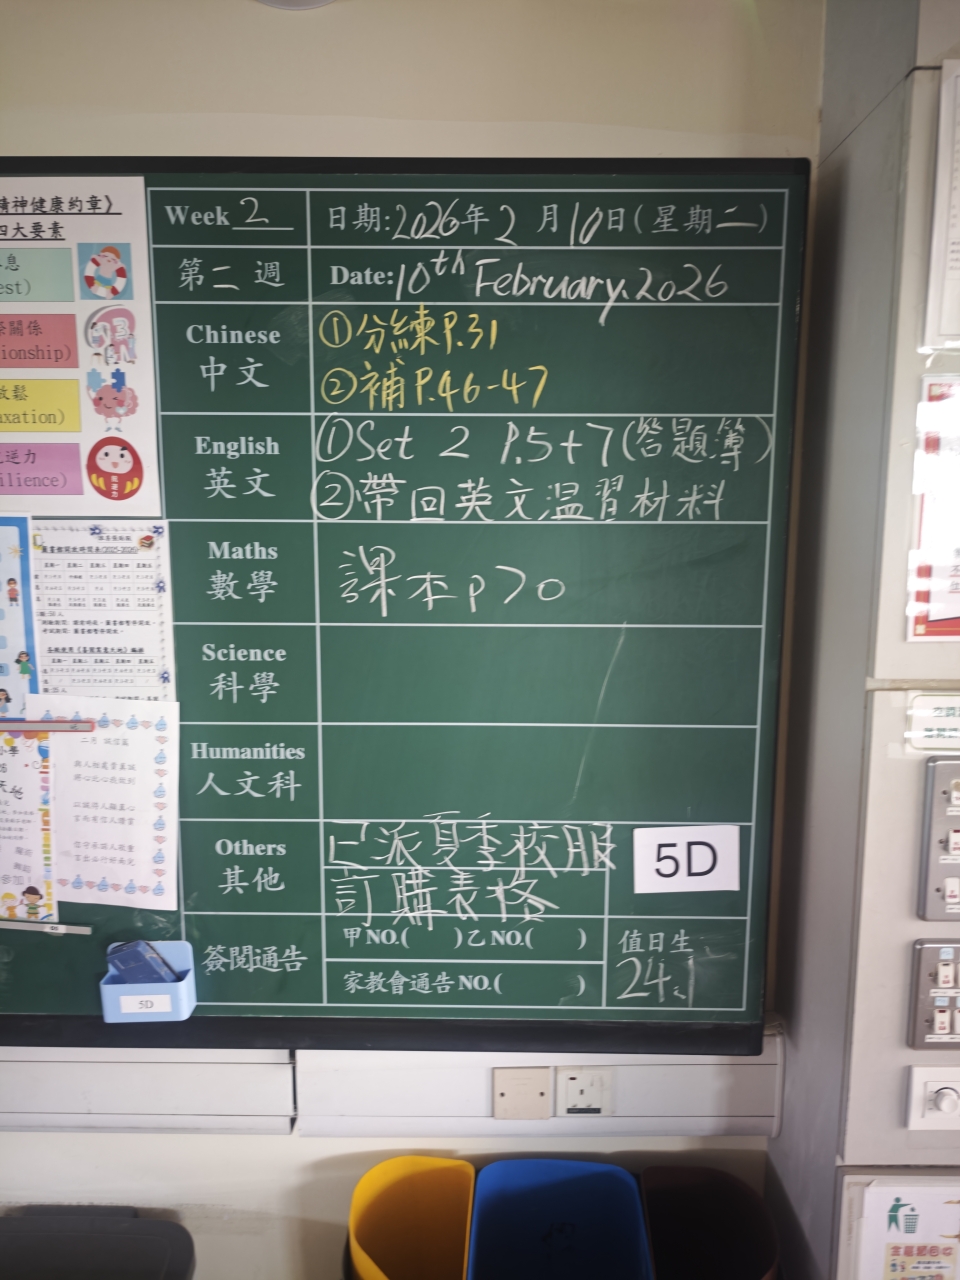 精神健康約章》
四大要素
息
est)
關係
ionship)
放鬆
axation)
逆力
ilience)
Week 2
日期:2026年2月10日(星期二)
第二週
Date:10th February.2026
Chinese
中文
①分練P.31
②補P.46-47
English
英文
①Set 2 P.5+7(答題簿)
②帶回英文温習材料
Maths
數學
課本p70
Science
科學
Humanities
人文科
Others
其他
已派夏季校服
訂購表格
5D
簽閱通告
甲NO.( )乙NO.( )
家教會通告NO.( )
值日生
24,1
圖書館開放時間表(2025-2026)
二月 誠信篇
5D